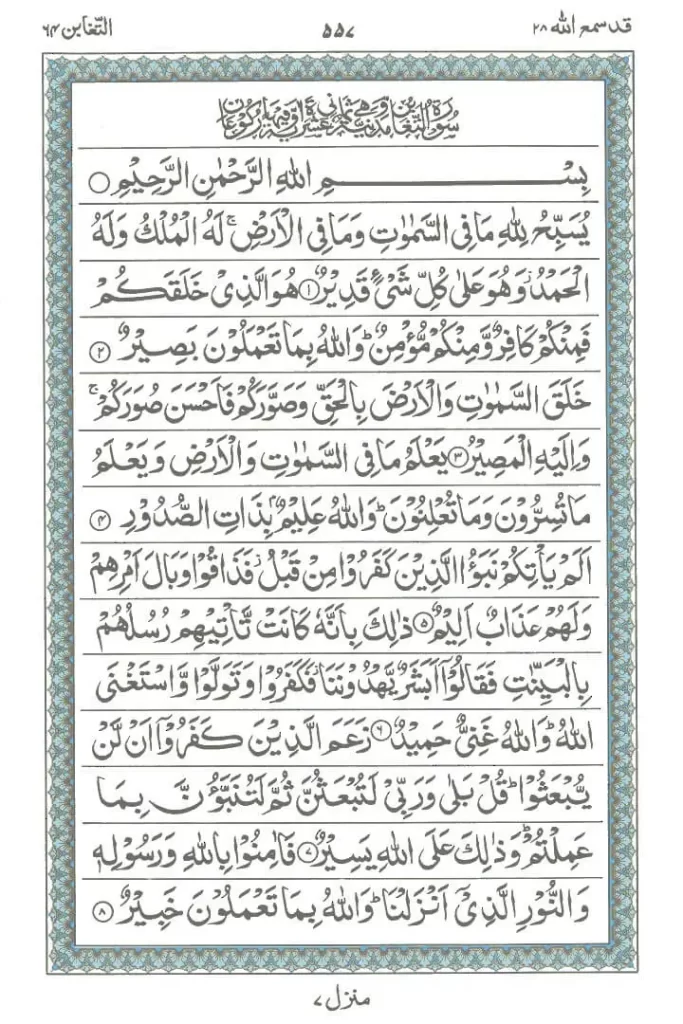 قد سمع اللہ ۲۸
۵۵۷
التغابن ۶۴
سُوْرَةُ التَّغَابُنِ مَدَنِيَّةٌ وَّهِيَ ثَمَانِيَ عَشْرَةَ اٰيَةً وَّفِيْهَا رُكُوْعَانِ
بِسْمِ اللهِ الرَّحْمٰنِ الرَّحِيْمِ ○
يُسَبِّحُ لِلّٰهِ مَا فِى السَّمٰوٰتِ وَمَا فِى الْاَرْضِ ۚ لَهُ الْمُلْكُ وَلَهُ
الْحَمْدُ ؗ وَهُوَ عَلٰى كُلِّ شَىْءٍ قَدِيْرٌ ۝۱ هُوَ الَّذِىْ خَلَقَكُمْ
فَمِنْكُمْ كَافِرٌ وَّمِنْكُمْ مُّؤْمِنٌ ؕ وَاللّٰهُ بِمَا تَعْمَلُوْنَ بَصِيْرٌ ۝۲
خَلَقَ السَّمٰوٰتِ وَالْاَرْضَ بِالْحَقِّ وَصَوَّرَكُمْ فَاَحْسَنَ صُوَرَكُمْ ۚ
وَاِلَيْهِ الْمَصِيْرُ ۝۳ يَعْلَمُ مَا فِى السَّمٰوٰتِ وَالْاَرْضِ وَيَعْلَمُ
مَا تُسِرُّوْنَ وَمَا تُعْلِنُوْنَ ؕ وَاللّٰهُ عَلِيْمٌۢ بِذَاتِ الصُّدُوْرِ ۝۴
اَلَمْ يَاْتِكُمْ نَبَؤُا الَّذِيْنَ كَفَرُوْا مِنْ قَبْلُ ؗ فَذَاقُوْا وَبَالَ اَمْرِهِمْ
وَلَهُمْ عَذَابٌ اَلِيْمٌ ۝۵ ذٰلِكَ بِاَنَّهٗ كَانَتْ تَّاْتِيْهِمْ رُسُلُهُمْ
بِالْبَيِّنٰتِ فَقَالُوْۤا اَبَشَرٌ يَّهْدُوْنَنَا ؗ فَكَفَرُوْا وَتَوَلَّوْا وَّاسْتَغْنَى
اللّٰهُ ؕ وَاللّٰهُ غَنِىٌّ حَمِيْدٌ ۝۶ زَعَمَ الَّذِيْنَ كَفَرُوْۤا اَنْ لَّنْ
يُّبْعَثُوْا ؕ قُلْ بَلٰى وَرَبِّىْ لَتُبْعَثُنَّ ثُمَّ لَتُنَبَّؤُنَّ بِمَا
عَمِلْتُمْ ؕ وَذٰلِكَ عَلَى اللّٰهِ يَسِيْرٌ ۝۷ فَاٰمِنُوْا بِاللّٰهِ وَرَسُوْلِهٖ
وَالنُّوْرِ الَّذِىْۤ اَنْزَلْنَا ؕ وَاللّٰهُ بِمَا تَعْمَلُوْنَ خَبِيْرٌ ۝۸
منزل ۷